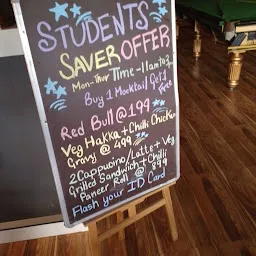 STUDENTS
SAVER OFFER
Mon-Thur Time-11am to
Buy 1 Mocktail Get 1
Free
Red Bull @ 199
Veg Hakka + Chilli Chicken
Gravy @ 499
2 Cappucino/Latte + Veg
Grilled Sandwich + Chilli
Paneer Roll @ 899
Flash your ID Card